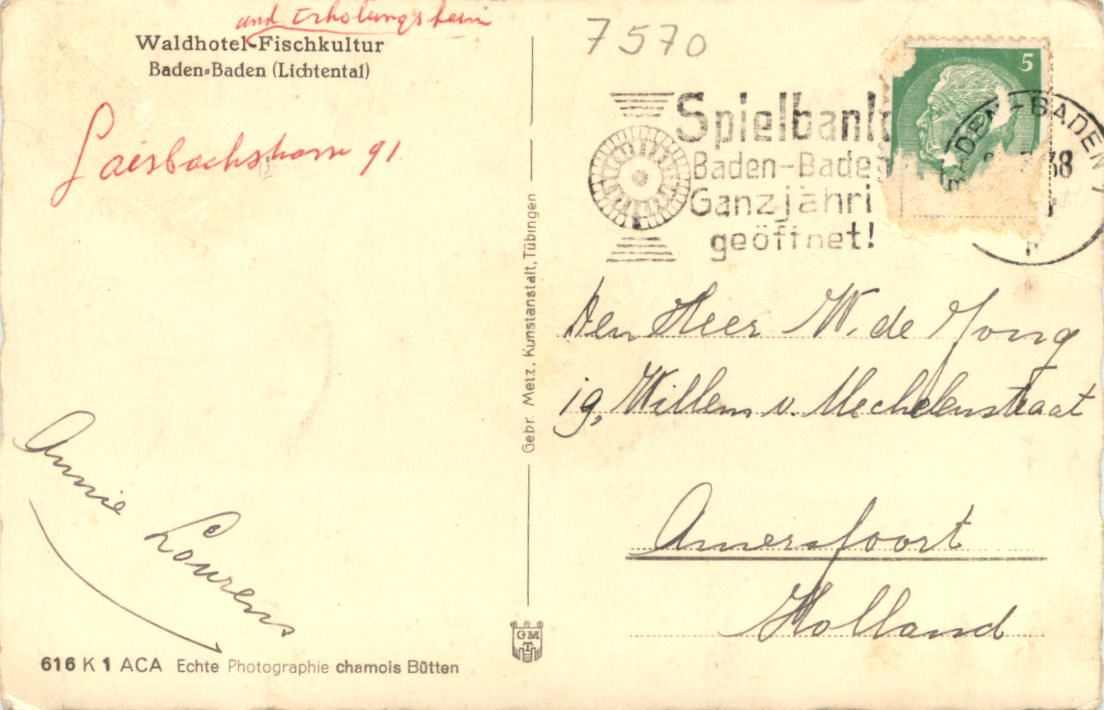 und Erholungsheim
Waldhotel-Fischkultur
Baden-Baden (Lichtental)
Gaisbachstrasse 91
7570
5
Spielbank
Baden-Baden
Ganzjähri
geöffnet!
BADEN-BADEN 1
38
Gebr. Metz, Kunstanstalt, Tübingen
Den Heer W. de Jong
19, Willem v. Mechelenstraat
Amersfoort
Holland
Annie Lourens
GM
T
616 K 1 ACA Echte Photographie chamois Bütten